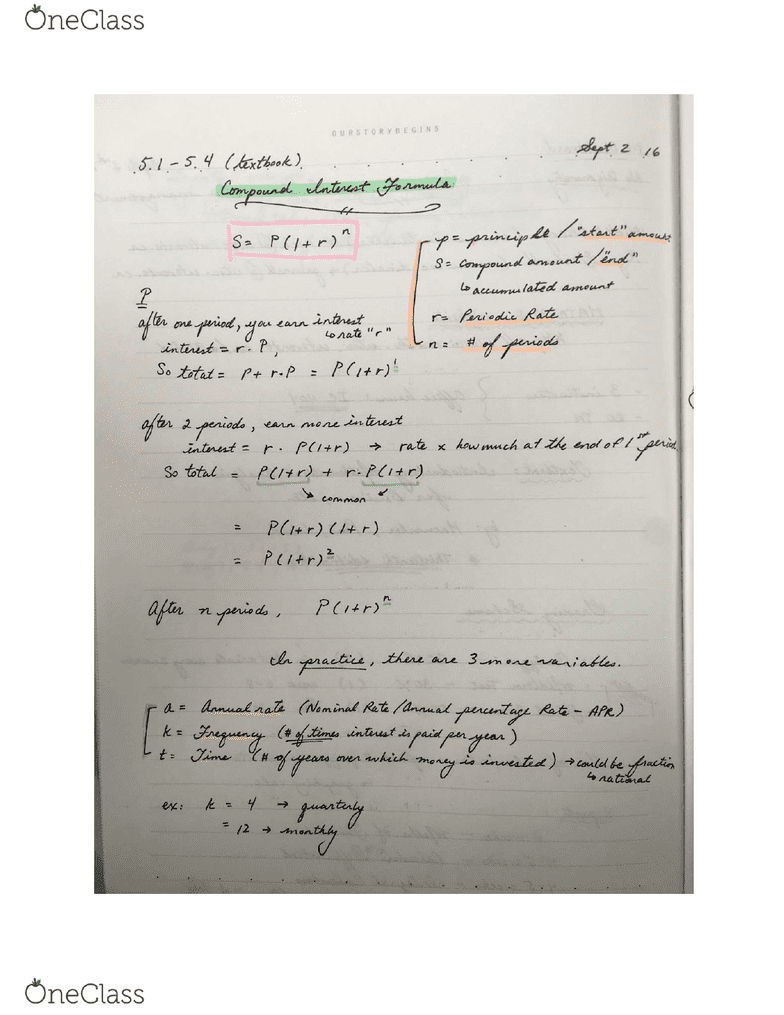 OneClass
OURSTORYBEGINS
5.1-5.4 (textbook)
Sept. 2 16
Compound Interest Formula
S= P(1+r)^n
p= principle / "start" amount
S= compound amount / "end"
↳ accumulated amount
r= Periodic Rate
n= # of periods
P
after one period, you earn interest
↳ rate "r"
interest = r. P,
So total = P+ r.P = P(1+r)^1
after 2 periods, earn more interest
interest = r . P(1+r) → rate x how much at the end of 1st period.
So total = P(1+r) + r.P(1+r)
common
= P(1+r)(1+r)
= P(1+r)^2
After n periods, P(1+r)^n
In practice, there are 3 more variables.
a = Annual rate (Nominal Rate/Annual percentage Rate - APR)
k = Frequency (# of times interest is paid per year)
t= Time (# of years over which money is invested) → could be fraction
↳ rational
ex: k = 4 → quarterly
= 12 → monthly
OneClass